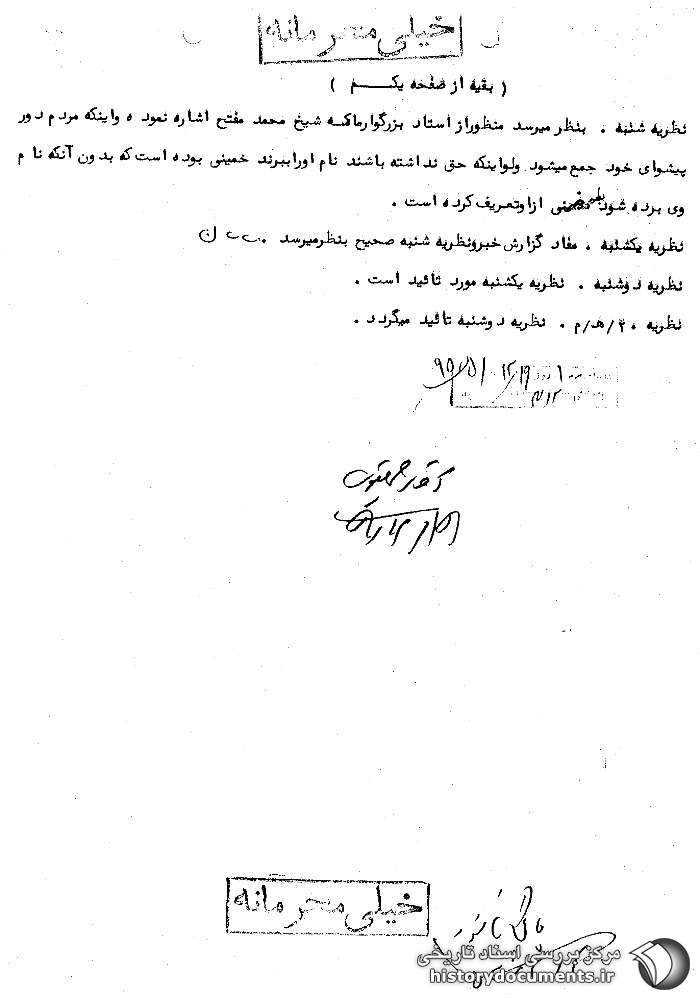 خیلی محرمانه
( بقیه از صفحه یکم )
نظریه شنبه . بنظر میرسد منظور از استاد بزرگوار ما که شیخ محمد مفتح اشاره نموده و اینکه مردم دور
پیشوای خود جمع میشود ولو اینکه حق نداشته باشند نام او را ببرند خمینی بوده است که بدون آنکه نام
وی برده شود بطور ضمنی از او تعریف کرده است .
نظریه یکشنبه . مفاد گزارش خبر و نظریه شنبه صحیح بنظر میرسد .
نظریه دوشنبه . نظریه یکشنبه مورد تائید است .
نظریه ۲۰/ه‍/م . نظریه دوشنبه تائید میگردد .
خیلی محرمانه
مرکز بررسی اسناد تاریخی
historydocuments.ir